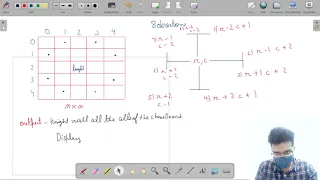 8 directions
0 1 2 3 4
0
1
2 knight
3
4
m x m
1) r-2 c+1
2) r-1 c+2
3) r+1 c+2
4) r+2 c+1
5) r+2
c-1
7) r-1
c-2
r, c
output - Knight visit all the cells of the chessboard
Display